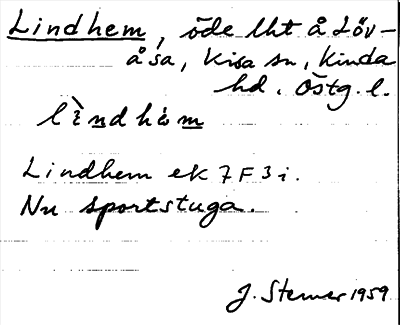 Lindhem, öde lht å Löv-
åsa, Kisa sn, Kinda
hd. Östg. l.
lìndhèm
Lindhem ek 7F3i.
Nu sportstuga.
J. Sterner 1959